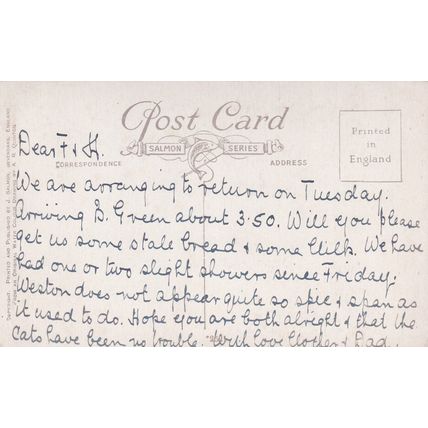 Post Card
SALMON SERIES
CORRESPONDENCE
ADDRESS
Printed
in
England
Dear F & H.
We are arranging to return on Tuesday.
Arriving G. Green about 3:50. Will you please
get us some stale bread & some Milk. We have
had one or two slight showers since Friday.
Weston does not appear quite so spic & span as
it used to do. Hope you are both alright & that the
cats have been no trouble. With love Mother & Dad.